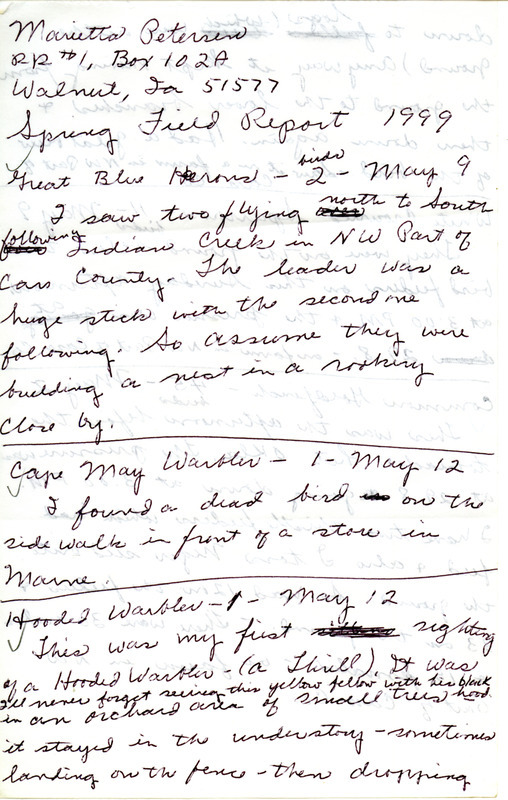 Marietta Petersen
RR #1, Box 102A
Walnut, Ia 51577
Spring Field Report 1999
Great Blue Herons - 2 birds - May 9
I saw two flying north to South
following Indian Creek in NW Part of
Cass County. The leader was a
huge stick with the second one
following. So assume they were
building a nest in a rooking
close by.
Cape May Warbler - 1 - May 12
I found a dead bird on the
side walk in front of a store in
Marne.
Hooded Warbler - 1 - May 12
This was my first sighting
of a Hooded Warbler - (a Thrill). It was
I'll never forget seeing this yellow fellow with his black hood
in an orchard area of small trees
it stayed in the understory - sometimes
landing on th fence - then dropping